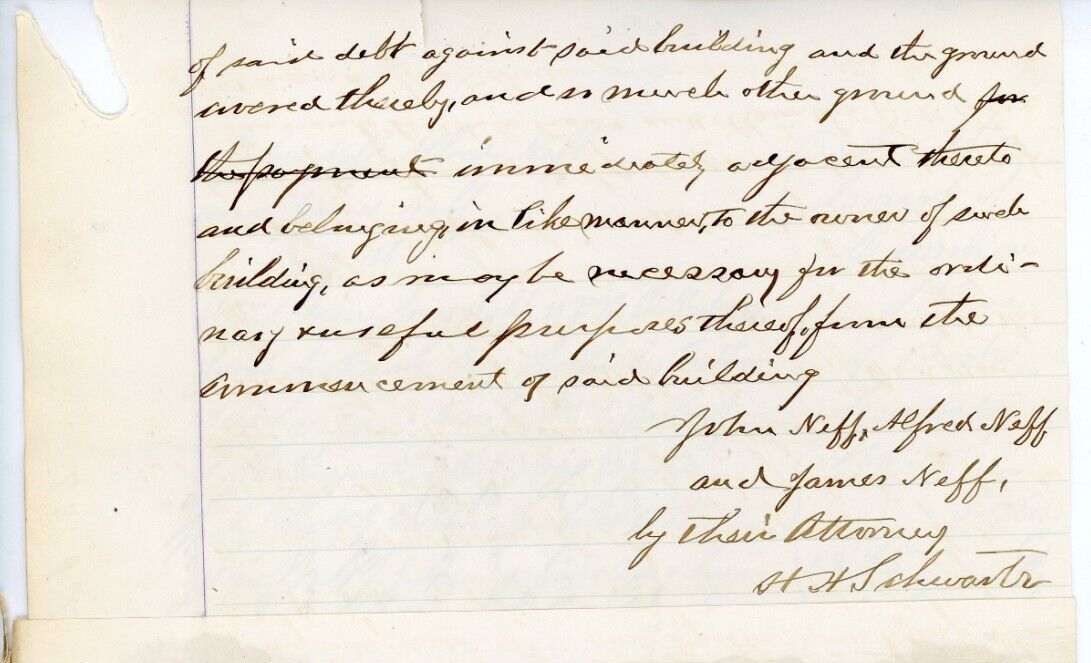 of said debt against said building and the ground
covered thereby, and so much other ground for
the payment immediately adjacent thereto
and belonging, in like manner, to the owner of such
building, as may be necessary for the ordi-
nary & useful purposes thereof, from the
commencement of said building
John Neff, Alfred Neff
and James Neff,
by their Attorney
H H Schwartz